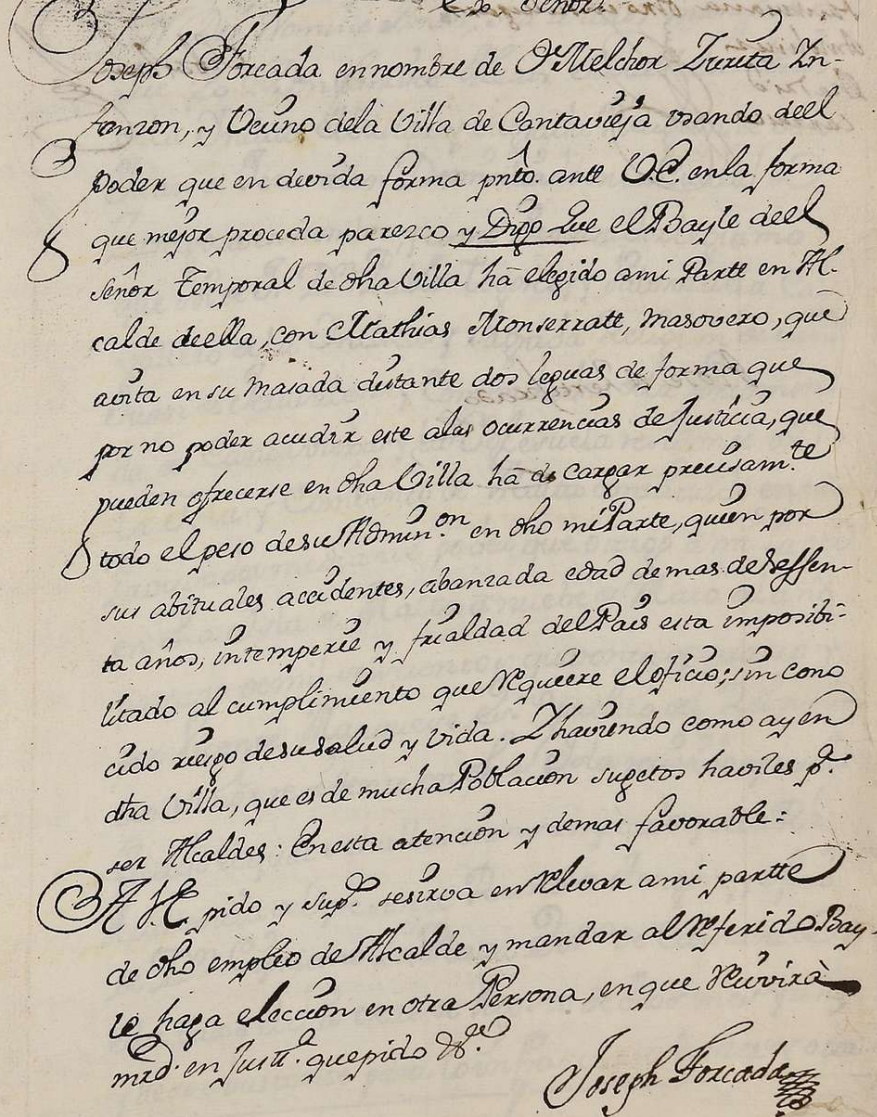 Ex.mo Señor.
Joseph Forcada en nombre de Dn Melchor Zurita In-
fanzon, y Vecino dela Villa de Cantavieja usando deel
poder que en devida forma pnto. ante V.E. en la forma
que mejor proceda parezco y Digo Que el Bayle deel
señor Temporal de dha Villa há elegido ami Parte en Al-
calde deella, con Mathias Monserratt, masovero, que
avita en su Masada distante dos leguas de forma que
por no poder acudir este alas ocurrencias de Justicia, que
pueden ofrecerse en dha Villa há de cargar precisam.te
todo el peso desu Admin.on en dho mi Parte, quien por
sus abituales accidentes, abanzada edad demas de sessen-
ta años, intemperie y frialdad del Pais esta imposibi-
litado al cumplimiento que Requiere el oficio; sin cono
cido riesgo desu salud y vida. Y haviendo como ay en
dha Villa, que es de mucha Poblacion sugetos haviles p.a
ser Alcaldes: En esta atención y demas favorable:
A V.E. pido y sup.co se sirva en Relevar ami partte
de dho empleo de Alcalde y mandar al Referido Bay-
le haga elección en otra Persona, en que Recivirà
mrd. en Justt.a que pido &.a
Joseph Forcada